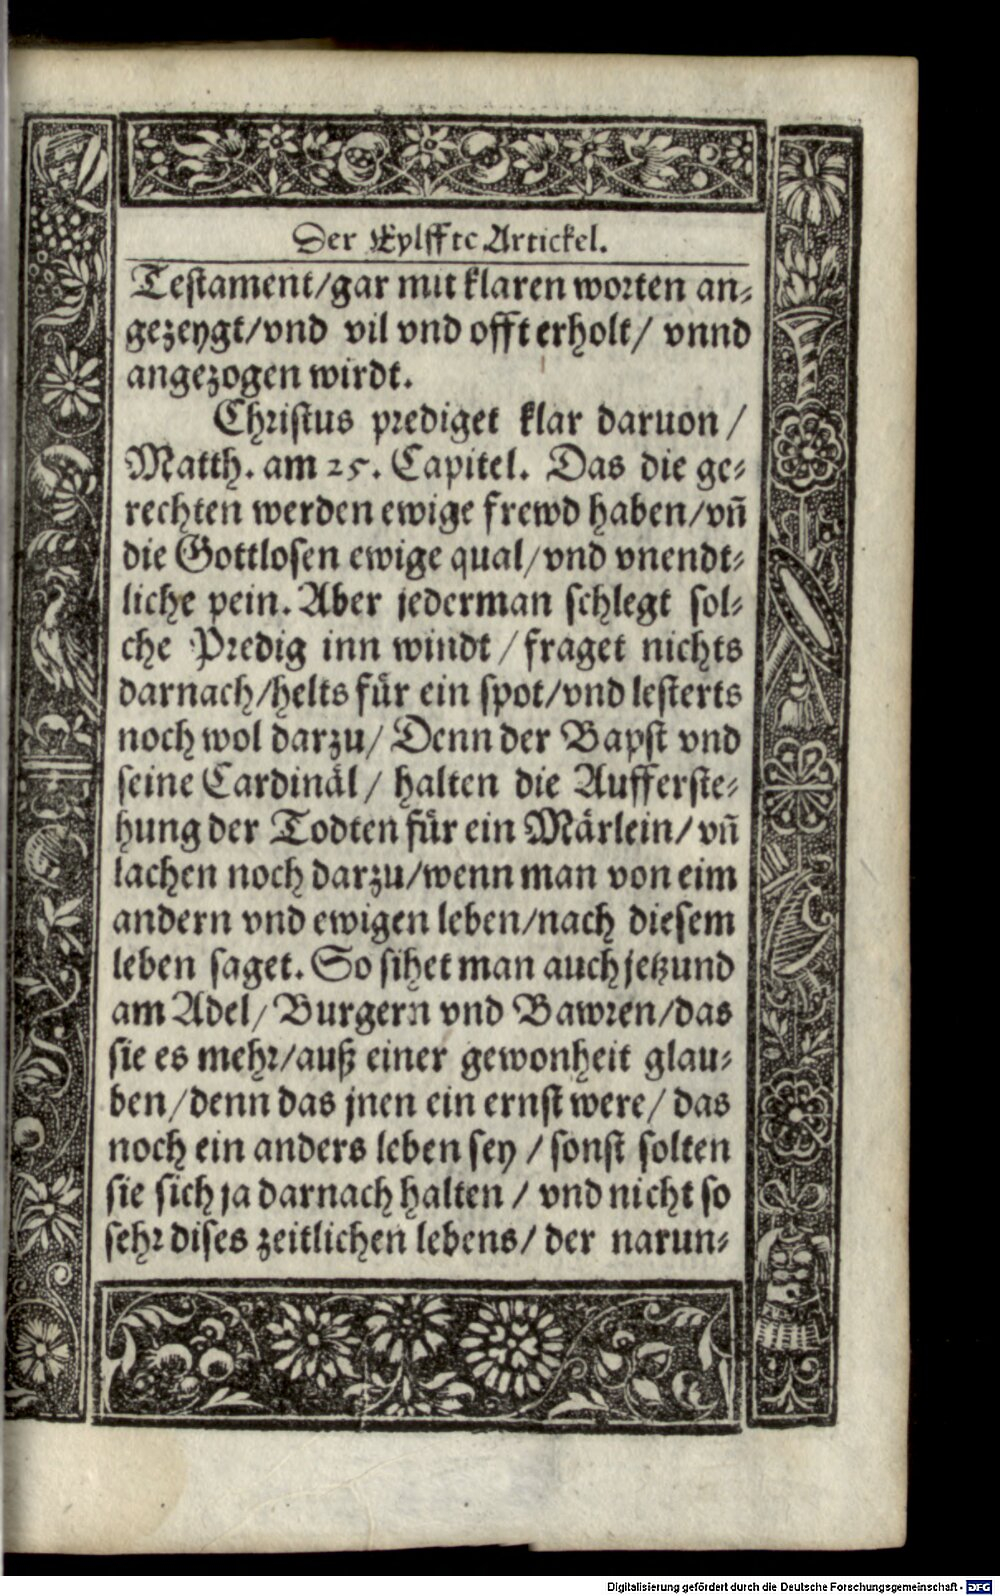 Der Eylffte Artickel.
Testament/gar mit klaren worten an⸗
gezeygt/vnd vil vnd offt erholt/ vnnd
angezogen wirdt.
Christus prediget klar daruon /
Matth. am 25. Capitel. Das die ge⸗
rechten werden ewige frewd haben/vñ
die Gottlosen ewige qual/vnd vnendt⸗
liche pein. Aber jederman schlegt sol⸗
che Predig inn windt / fraget nichts
darnach/helts für ein spot/vnd lesterts
noch wol darzu/ Denn der Bapst vnd
seine Cardinäl/ halten die Aufferste⸗
hung der Todten für ein Märlein/ vñ
lachen noch darzu/wenn man von eim
andern vnd ewigen leben/nach diesem
leben saget. So sihet man auch jetzund
am Adel/ Burgern vnd Bawren/das
sie es mehr/auß einer gewonheit glau⸗
ben/denn das jnen ein ernst were/ das
noch ein anders leben sey / sonst solten
sie sich ja darnach halten / vnd nicht so
sehr dises zeitlichen lebens/ der narun⸗
Digitalisierung gefördert durch die Deutsche Forschungsgemeinschaft - DFG